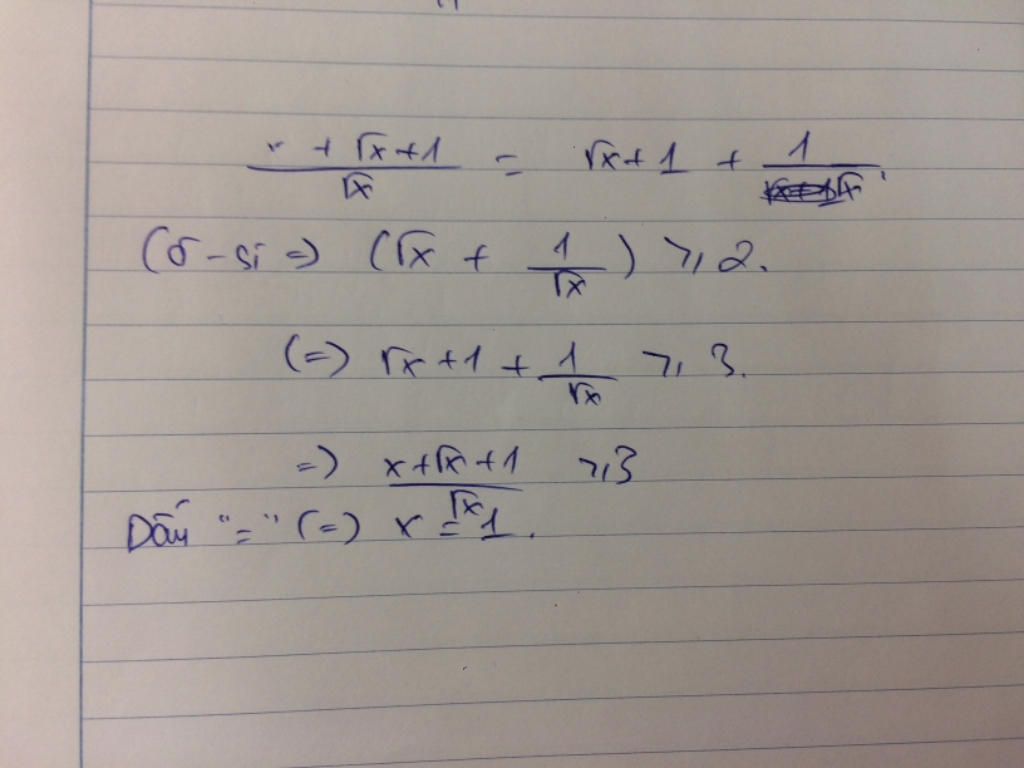 x + √x + 1 / √x = √x + 1 + 1/√x.
Cô-si => (√x + 1/√x) ≥ 2.
(=) √x + 1 + 1/√x ≥ 3.
=> x + √x + 1 / √x ≥ 3
Dấu "=" (=) x = 1.